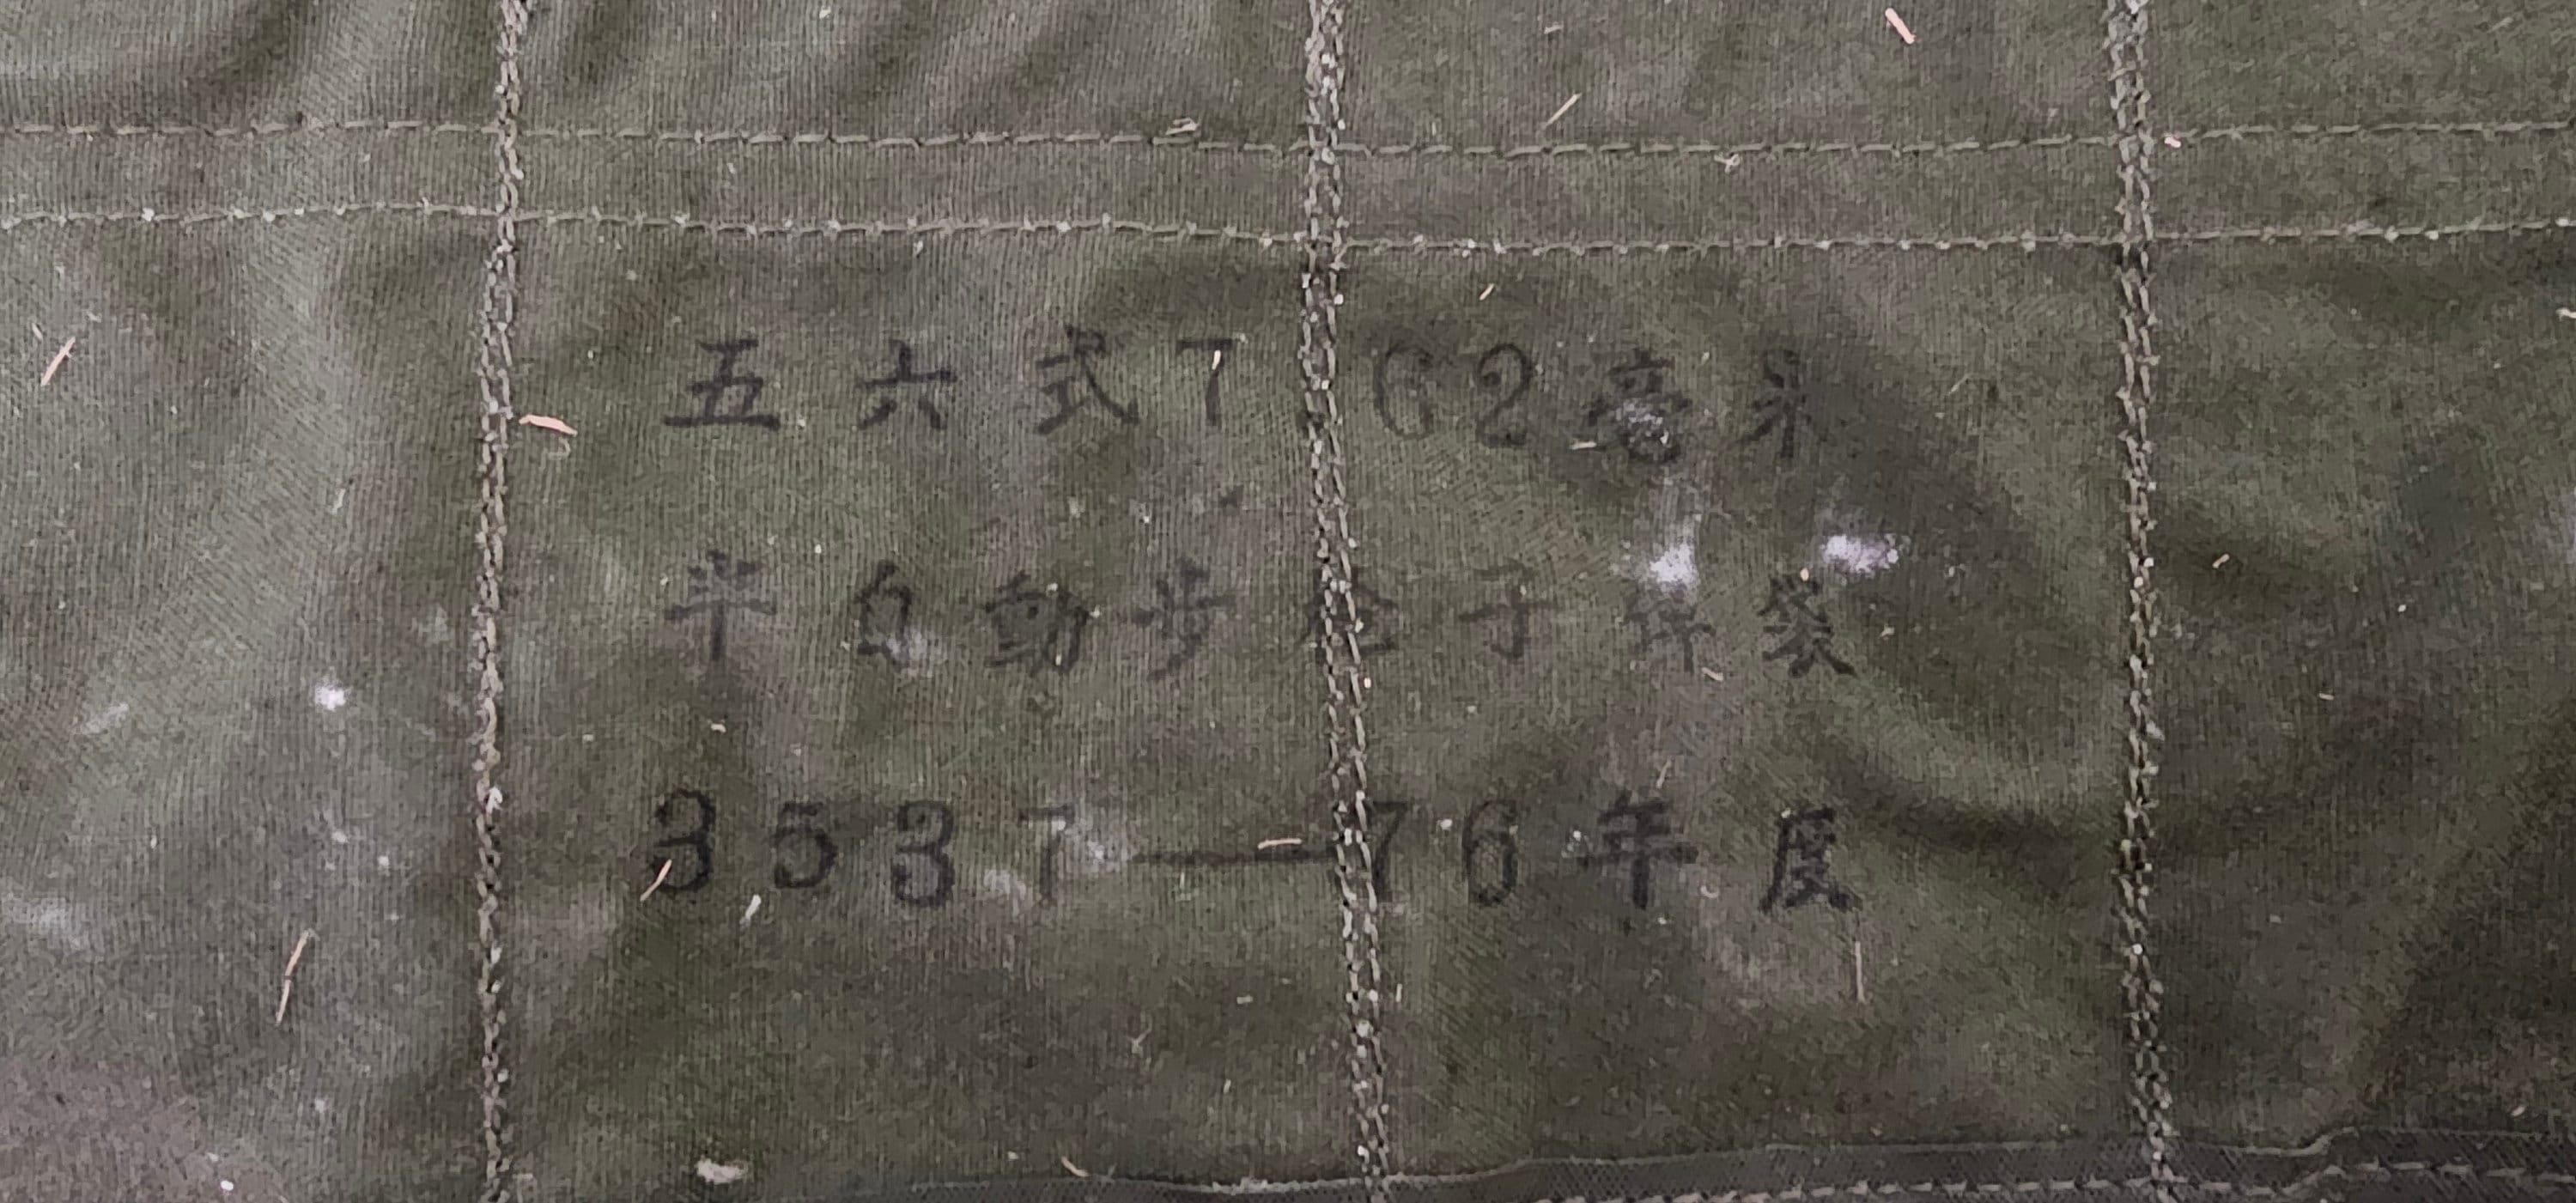 五六式7.62毫米
半自動步枪子弹袋
3537—76年度